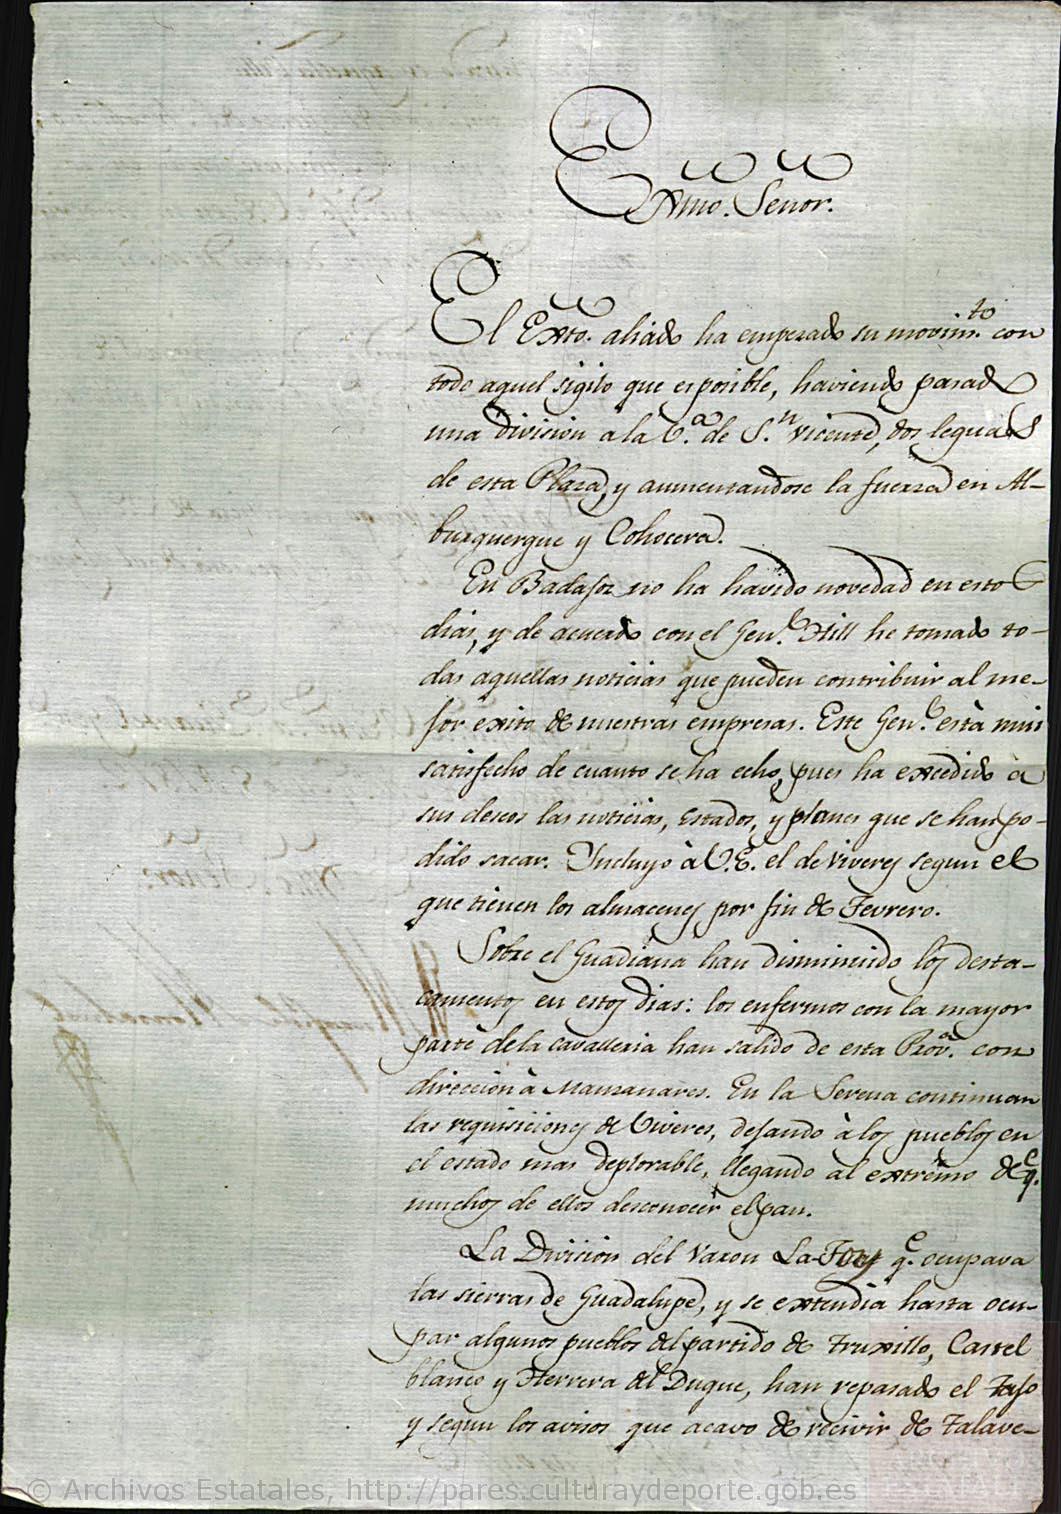 Exmo. Señor.
El Exto. aliado ha empezado su movim.to con
todo aquel sigilo que es posible, haviendo pasado
una division a la V.a de S.n Vicente, dos leguas
de esta Plaza, y aumentandose la fuerza en Al-
burquerque y Cohocera.
En Badajoz no ha havido novedad en estos
dias, y de acuerdo con el Gen.l Hill he tomado to-
das aquellas noticias que pueden contribuir al me-
jor exito de nuestras empresas. Este Gen.l està mui
satisfecho de cuanto se ha echo, pues ha excedido à
sus deseos las noticias, estados, y planes que se han po-
dido sacar. Incluyo à V.E. el de viveres segun el
que tienen los almacenes por fin de Fevrero.
Sobre el Guadiana han disminuido los desta-
camentos en estos dias: los enfermos con la mayor
parte de la cavalleria han salido de esta Prov.a con
direccion à Manzanares. En la Serena continuan
las requisiciones de Viveres, dejando à los pueblos en
el estado mas deplorable, llegando al extremo de q.e
muchos de ellos desconocer el pan.
La Division del Varon La-Foy q.e ocupava
las sierras de Guadalupe, y se extendia hasta ocu-
par algunos pueblos del partido de Truxillo, Castel
blanco y Herrera del Duque, han repasado el Tajo
y segun los avisos que acavo de recivir de Talave-
© Archivos Estatales, http://pares.culturaydeporte.gob.es